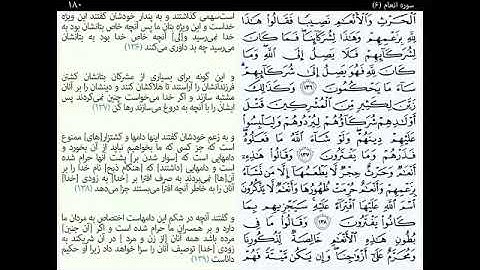 سوره انعام (۶)
۱۸۰
ٱلْحَرْثِ وَٱلْأَنْعَٰمِ نَصِيبًا فَقَالُوا۟ هَٰذَا
لِلَّهِ بِزَعْمِهِمْ وَهَٰذَا لِشُرَكَآئِنَا فَمَا
كَانَ لِشُرَكَآئِهِمْ فَلَا يَصِلُ إِلَى ٱللَّهِ وَمَا
كَانَ لِلَّهِ فَهُوَ يَصِلُ إِلَىٰ شُرَكَآئِهِمْ
سَآءَ مَا يَحْكُمُونَ ١٣٦ وَكَذَٰلِكَ
زَيَّنَ لِكَثِيرٍ مِّنَ ٱلْمُشْرِكِينَ قَتْلَ
أَوْلَٰدِهِمْ شُرَكَآؤُهُمْ لِيُرْدُوهُمْ وَلِيَلْبِسُوا۟
عَلَيْهِمْ دِينَهُمْ وَلَوْ شَآءَ ٱللَّهُ مَا فَعَلُوهُ
فَذَرْهُمْ وَمَا يَفْتَرُونَ ١٣٧ وَقَالُوا۟ هَٰذِهِۦٓ
أَنْعَٰمٌ وَحَرْثٌ حِجْرٌ لَّا يَطْعَمُهَآ إِلَّا مَن نَّشَآءُ
بِزَعْمِهِمْ وَأَنْعَٰمٌ حُرِّمَتْ ظُهُورُهَا وَأَنْعَٰمٌ لَّا يَذْكُرُونَ
ٱسْمَ ٱللَّهِ عَلَيْهَا ٱفْتِرَآءً عَلَيْهِ سَيَجْزِيهِم بِمَا
كَانُوا۟ يَفْتَرُونَ ١٣٨ وَقَالُوا۟ مَا فِى
بُطُونِ هَٰذِهِ ٱلْأَنْعَٰمِ خَالِصَةٌ لِّذُكُورِنَا
وَمُحَرَّمٌ عَلَىٰٓ أَزْوَٰجِنَا وَإِن يَكُن مَّيْتَةً فَهُمْ
است سهمی گذاشتند و به پندار خودشان گفتند این ویژه
خداست و این ویژه بتان ما پس آنچه خاص بتانشان بود به
خدا نمی‌رسید و[لی] آنچه خاص خدا بود به بتانشان
می‌رسید چه بد داوری می‌کنند (۱۳۶)
و این گونه برای بسیاری از مشرکان بتانشان کشتن
فرزندانشان را آراستند تا هلاکشان کنند و دینشان را بر آنان
مشتبه سازند و اگر خدا می‌خواست چنین نمی‌کردند پس
ایشان را با آنچه به دروغ می‌سازند رها کن (۱۳۷)
و به زعم خودشان گفتند اینها دامها و کشتزار[های] ممنوع
است که جز کسی که ما بخواهیم نباید از آن بخورد و
دامهایی است که [سوار شدن بر] پشت آنها حرام شده
است و دامهایی [داشتند] که [هنگام ذبح] نام خدا را بر
آن[ها] نمی‌بردند به صرف افترا بر [خدا] به زودی [خدا]
آنان را به خاطر آنچه افترا می‌بستند جزا می‌دهد (۱۳۸)
و گفتند آنچه در شکم این دامهاست اختصاص به مردان ما
دارد و بر همسران ما حرام شده است و اگر [آن جنین]
مرده باشد همه آنان [از زن و مرد] در آن شریکند به
زودی [خدا] توصیف آنان را سزا خواهد داد زیرا او حکیم
داناست (۱۳۹)